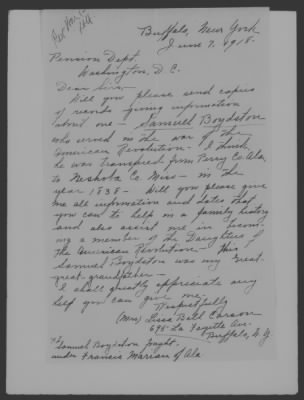 Rev War
Buffalo, New York
June 7, 1918.
Pension Dept.
Washington, D.C.
Dear Sirs,-
Will you please send copies
of records giving information
about one - Samuel Boydston
who served in the war of the
American Revolution - I think
he was transfered from Perry Co. Ala.
to Neshoba Co. Miss - in the
year 1838 - Will you please give
me all information and dates that
you can to help in a family history
and also assist me in becom-
ing a member of the Daughters of
the American Revolution - This
Samuel Boydston was my great-
great-grandfather -
I shall greatly appreciate any
help you can give me.
Respectfully
(Mrs) Lissa Bell Carson
698 La Fayette Ave.
Buffalo, N.Y.
Samuel Boydston fought
under Francis Marion of Ala